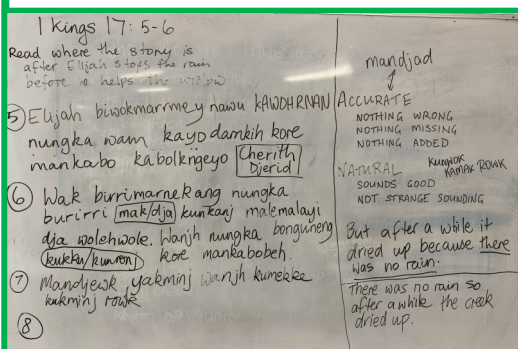 1 Kings 17: 5-6
Read where the story is
after Elijah stops the rain
before he helps the widow
5 Elijah biwokmarrmey nawu KAWOHRNAN
nungka wam kayo darnkih kore
mankabo kabolkngeyo Cherith
Djerid
6 Wak birrimarnekang nungka
burirri mak/dja kunkanj malemalayi
dja wolehwole. Wanjh nungka bonguneng
kukku/kunronj kore mankabobeh.
7 Mandjewk yakminj wanjh kumekke
kukminj rowk
8
mandjad
ACCURATE
NOTHING WRONG
NOTHING MISSING
NOTHING ADDED
NATURAL KUNWOK
KAMAK ROWK
SOUNDS GOOD
NOT STRANGE SOUNDING
But after a while it
dried up because there
was no rain.
There was no rain so
after a while the creek
dried up.